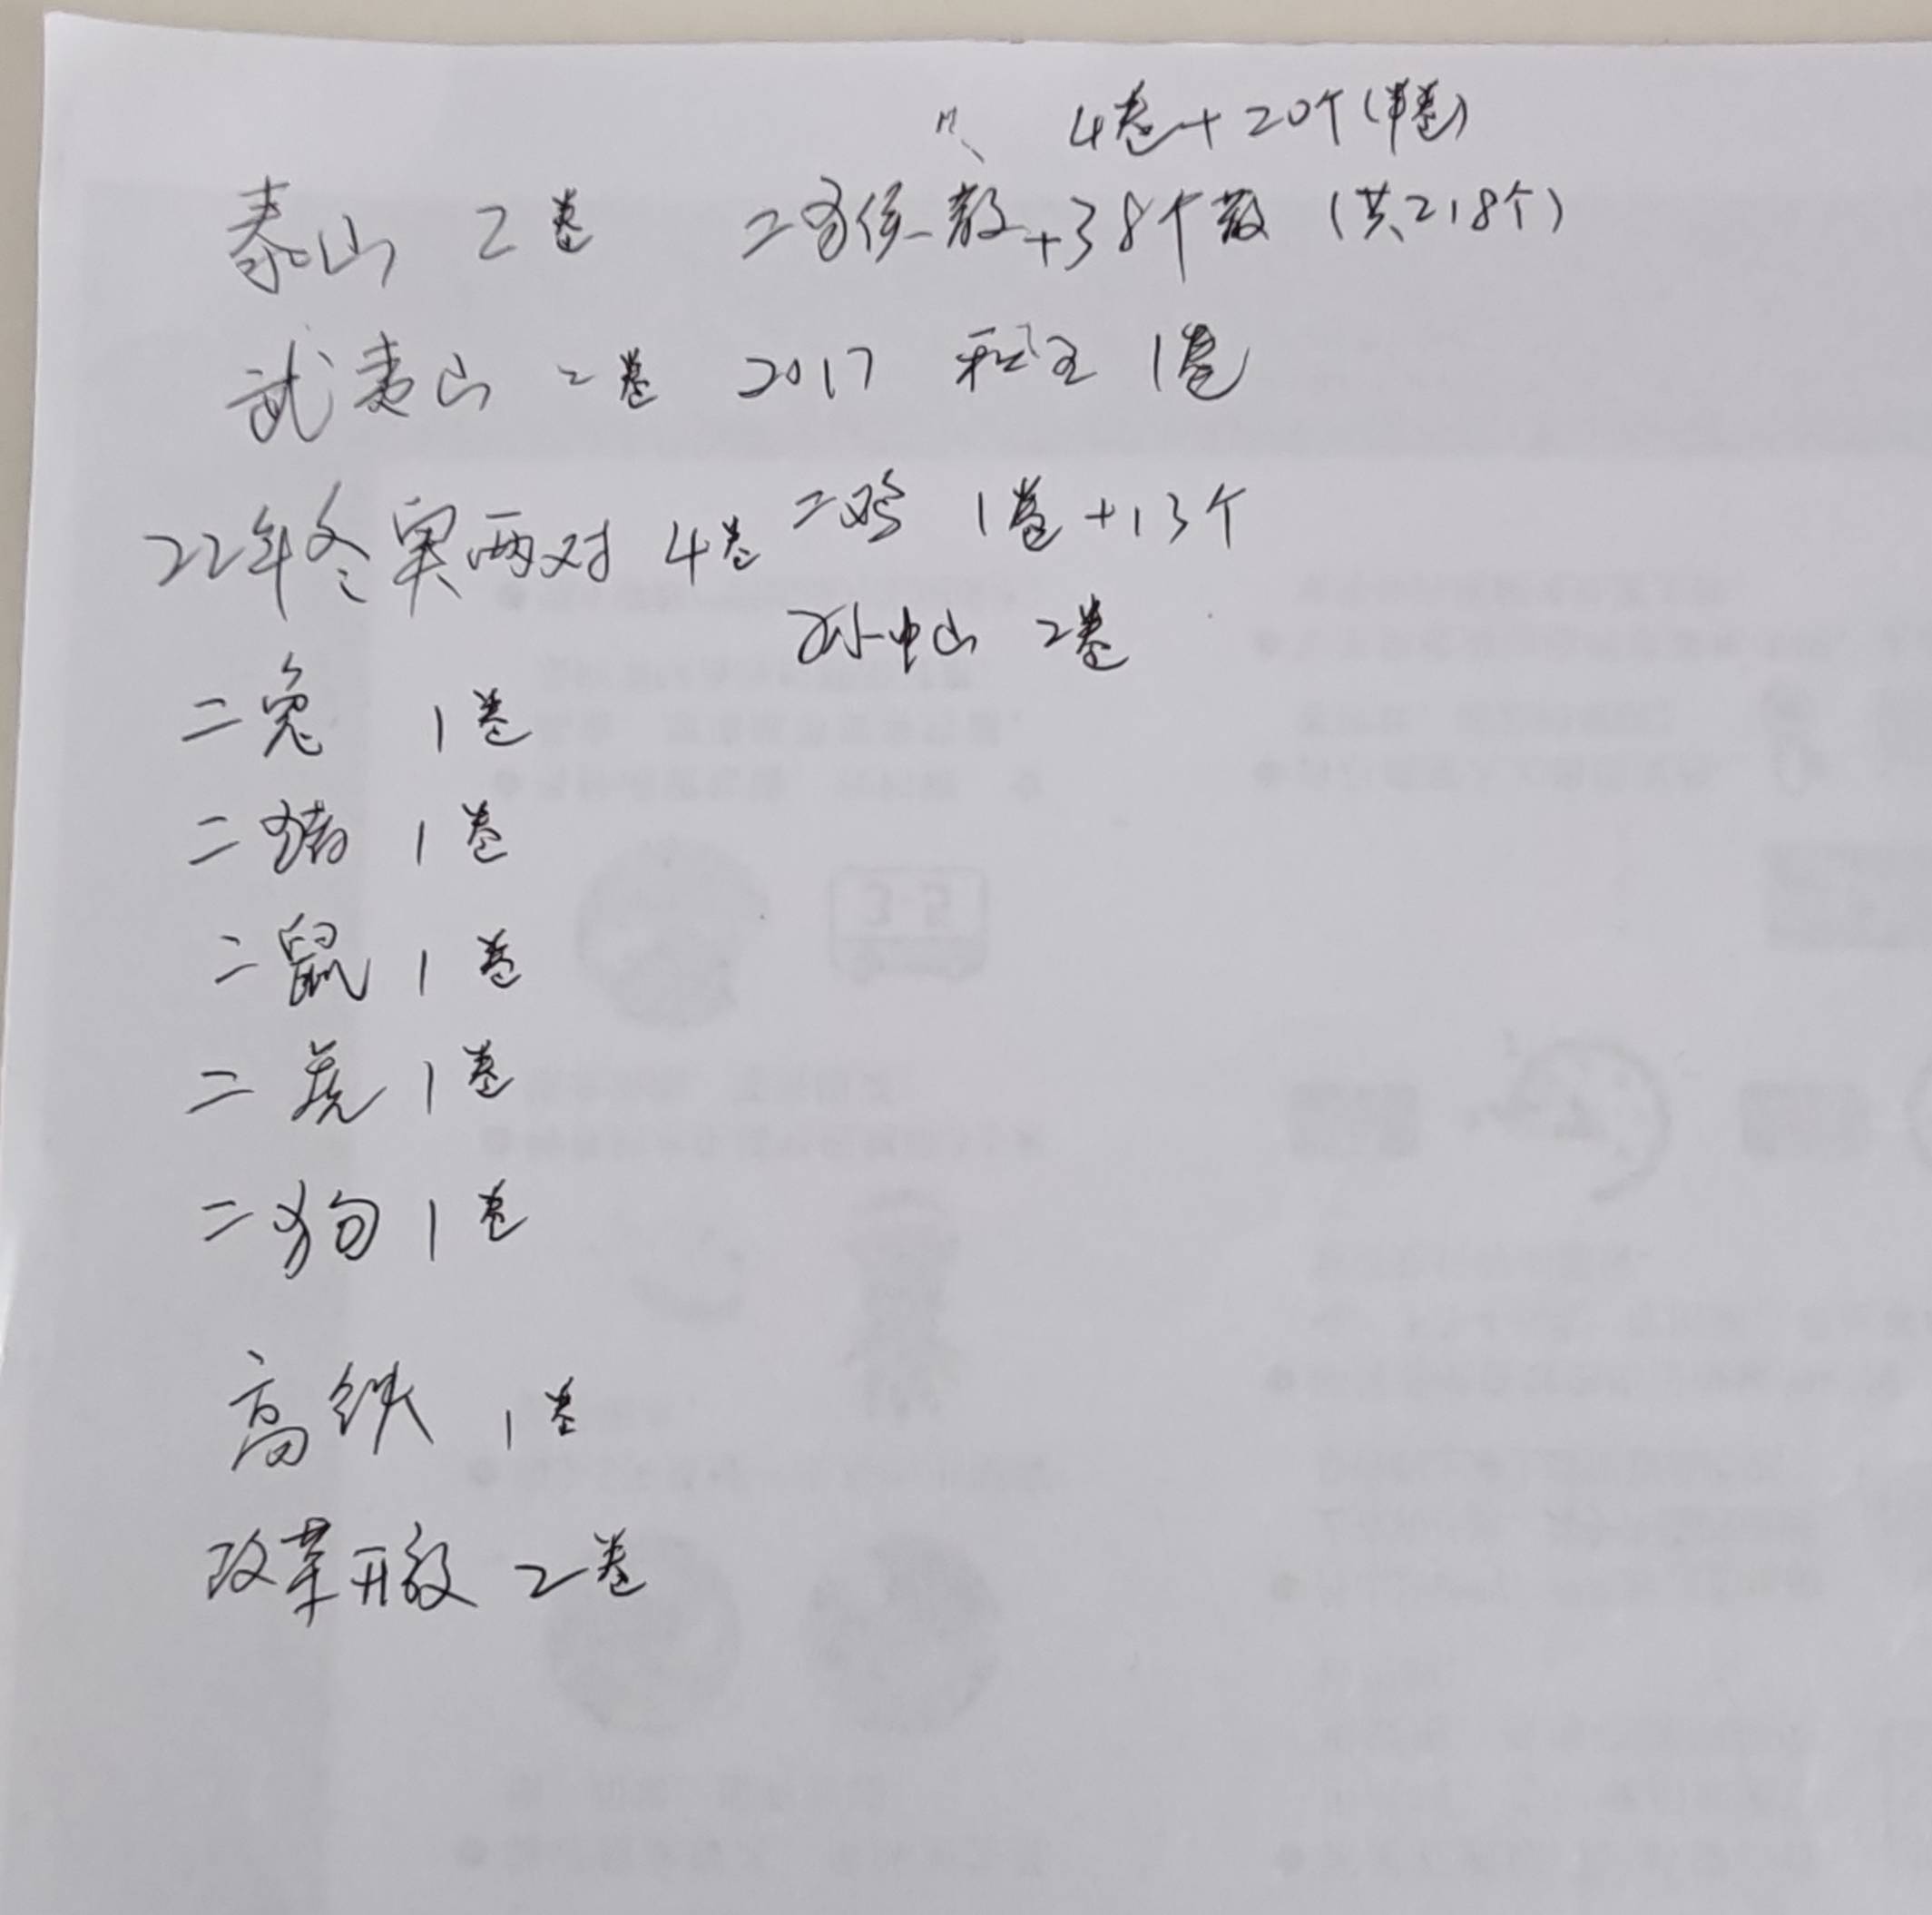 4卷+20个(半卷)
泰山 2卷 二猴 散+38个散 (共218个)
武夷山 2卷 2017 和字 1卷
22年冬奥两对 4卷 二鸡 1卷+13个
孙中山 2卷
二兔 1卷
二猪 1卷
二鼠 1卷
二虎 1卷
二狗 1卷
高铁 1卷
改革开放 2卷